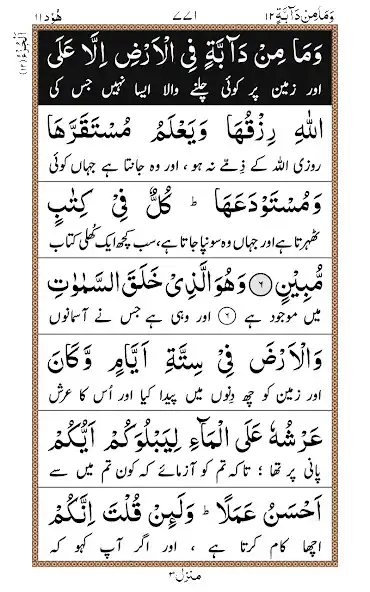 وَمَا مِنْ دَآبَّةٍ ١٢ ٧٧١ هُوْد ١١
اَلْجُزْءُ (١٢)
وَمَا مِنْ دَآبَّةٍ فِي الْاَرْضِ اِلَّا عَلَى
اور زمین پر کوئی چلنے والا ایسا نہیں جس کی
اللّٰهِ رِزْقُهَا وَيَعْلَمُ مُسْتَقَرَّهَا
روزی اللہ کے ذمّے نہ ہو ، اور وہ جانتا ہے جہاں کوئی
وَمُسْتَوْدَعَهَا ؕ كُلٌّ فِيْ كِتٰبٍ
ٹھہرتا ہے اور جہاں وہ سونپا جاتا ہے، سب کچھ ایک کُھلی کتاب
مُّبِيْنٍ ۶ وَهُوَ الَّذِيْ خَلَقَ السَّمٰوٰتِ
میں موجود ہے ۶ اور وہی ہے جس نے آسمانوں
وَالْاَرْضَ فِيْ سِتَّةِ اَيَّامٍ وَّكَانَ
اور زمین کو چھ دِنوں میں پیدا کیا اور اُس کا عرش
عَرْشُهٗ عَلَى الْمَآءِ لِيَبْلُوَكُمْ اَيُّكُمْ
پانی پر تھا ؛ تاکہ تم کو آزمائے کہ کون تم میں سے
اَحْسَنُ عَمَلًا ؕ وَلَئِنْ قُلْتَ اِنَّكُمْ
اچھا کام کرتا ہے ، اور اگر آپ کہو کہ
منزل ۳